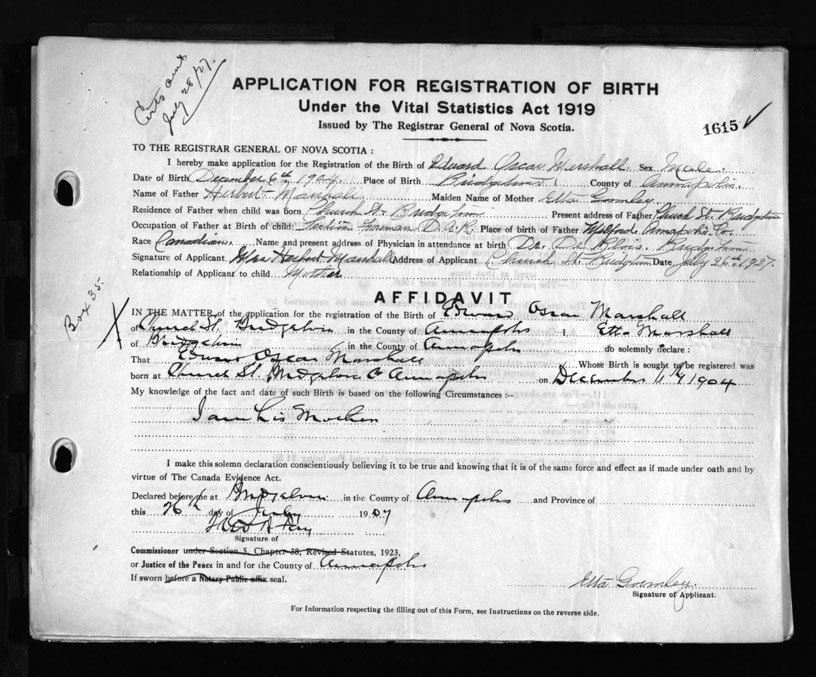 Certs sent
July 28/27.
APPLICATION FOR REGISTRATION OF BIRTH
Under the Vital Statistics Act 1919
Issued by The Registrar General of Nova Scotia.
1615 ✓
TO THE REGISTRAR GENERAL OF NOVA SCOTIA :
I hereby make application for the Registration of the Birth of Edward Oscar Marshall. Sex Male.
Date of Birth December 6th, 1904. Place of Birth Bridgetown County of Annapolis.
Name of Father Herbert Marshall Maiden Name of Mother Etta Gormley.
Residence of Father when child was born Church St. Bridgetown Present address of Father Church St. Bridgetown
Occupation of Father at Birth of child Section Foreman D.A.R. Place of birth of Father Milford Annapolis Co.
Race Canadian. Name and present address of Physician in attendance at birth Dr. De Blois. Bridgetown
Signature of Applicant Mrs Herbert Marshall Address of Applicant Church St. Bridgetown Date July 26th, 1927.
Relationship of Applicant to child Mother
Box 35.
AFFIDAVIT
IN THE MATTER of the application for the registration of the Birth of Edward Oscar Marshall
of Church St. Bridgetown in the County of Annapolis I, Etta Marshall
of Bridgetown in the County of Annapolis do solemnly declare :
That Edward Oscar Marshall Whose Birth is sought to be registered was
born at Church St. Bridgetown Co Annapolis on December 1904
My knowledge of the fact and date of such Birth is based on the following Circumstances :--
I am his Mother
I make this solemn declaration conscientiously believing it to be true and knowing that it is of the same force and effect as if made under oath and by
virtue of The Canada Evidence Act.
Declared before me at Bridgetown in the County of Annapolis and Province of
this 26th day of July 19
Signature of
Commissioner under Section 5, Chapter 38, Revised Statutes, 1923,
or Justice of the Peace in and for the County of Annapolis
If sworn before a Notary Public affix seal.
Etta Gormley.
Signature of Applicant.
For Information respecting the filling out of this Form, see Instructions on the reverse side.